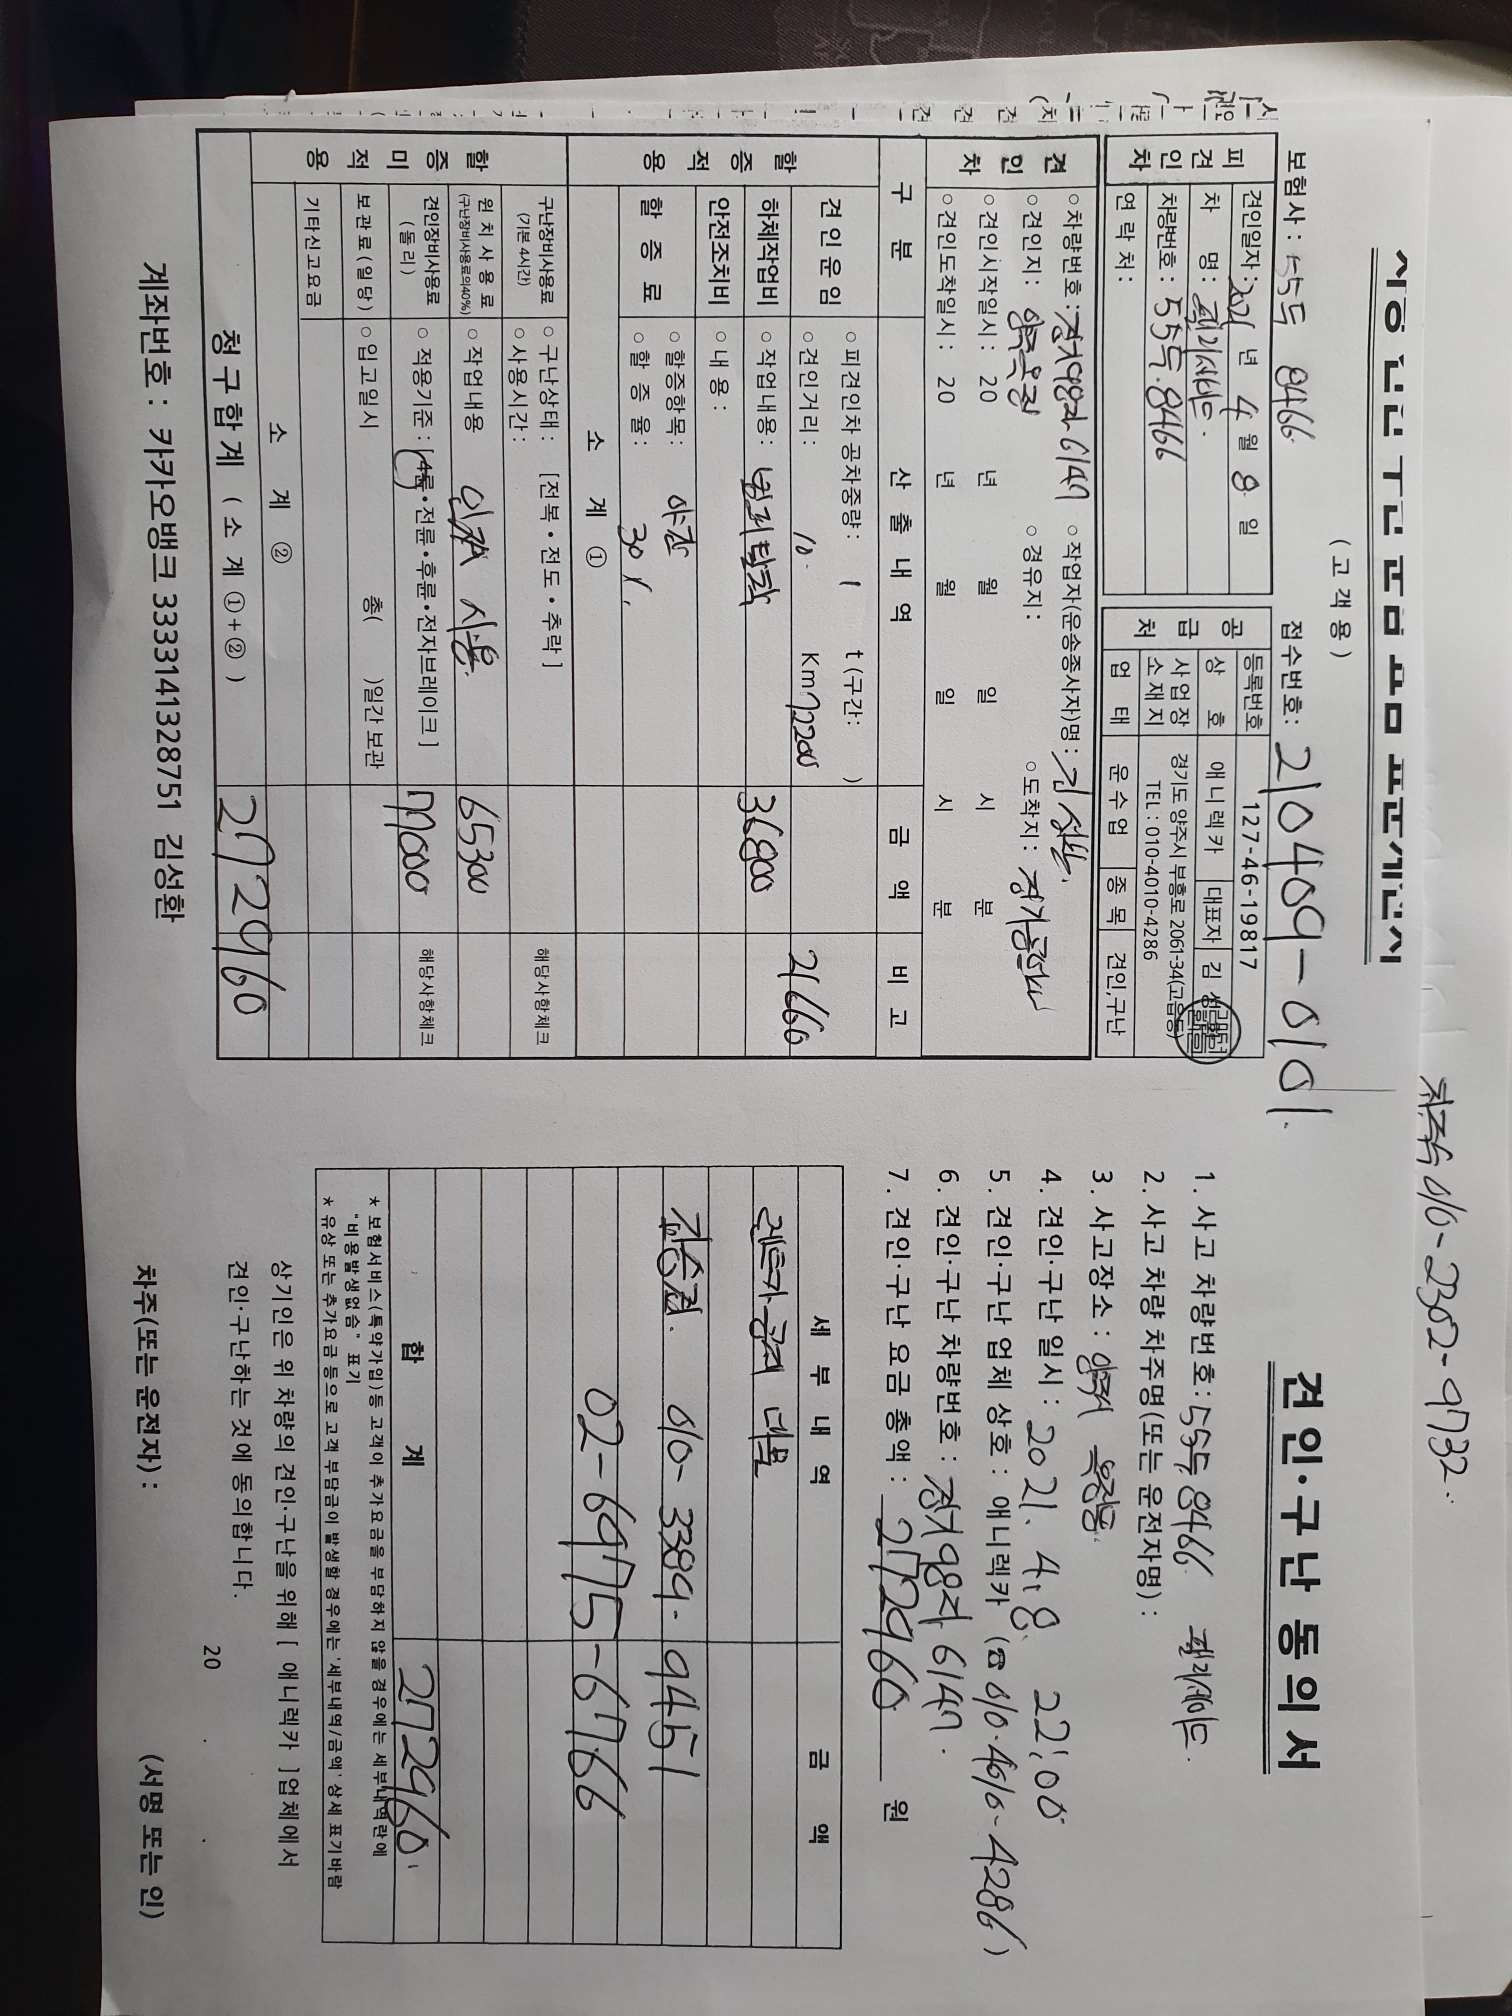 (고객용)
보험사 : 55두 8466
접수번호: 210409-0101.
피견인차
견인일자: 2021 년 4 월 8 일
차 명 : 팰리세이드.
차량번호 : 55두.8466
연 락 처 :
공급처
등록번호 127-46-19817
상 호 애니렉카 대표자 김성환
사업장 소재지 경기도 양주시 부흥로 2061-34(고읍동)
TEL : 010-4010-4286
업 태 운수업 종 목 견인,구난
견인차
○차량번호 : 경기98자6147 ○작업자(운송종사자)명 : 김성환.
○견인지 : ○경유지 : ○도착지 :
○견인시작일시 : 20 년 월 일 시 분
○견인도착일시 : 20 년 월 일 시 분
구 분 산 출 내 역 금 액 비 고
할증적용
견인운임 ○피견인차 공차중량 : 1 t (구간: )
○견인거리 : 10. Km 72200 21660
하체작업비 ○작업내용: 36800
안전조치비 ○내 용 :
할 증 료 ○할증항목: 야간
○할 증 율 : 30%.
소 계 ①
할증미적용
구난장비사용료 (기본 4시간) ○구난상태 : [전복·전도·추락] 해당사항체크
○사용시간 :
윈 치 사 용 료 (구난장비사용료의40%) ○작업내용 사용 65300
견인장비사용료 (돌리) ○적용기준 : [4륜·전륜·후륜·전자브레이크] 77000 해당사항체크
보관료(일당) ○입고일시 총( )일간 보관
기타신고요금
소 계 ②
청구합계 (소 계 ①+②) 272960
계좌번호 : 카카오뱅크 3333141328751 김성환
차주 010-2302-9732.
견인·구난 동의서
1. 사고 차량번호 : 55두8466 팰리세이드.
2. 사고 차량 차주명(또는 운전자명) :
3. 사고장소 : 양주시 옥정동
4. 견인·구난 일시 : 2021. 4.8. 22:00
5. 견인·구난 업체 상호 : 애니렉카 (☎ 010-4010-4286)
6. 견인·구난 차량번호 : 경기98자 6147.
7. 견인·구난 요금 총액 : 272960 원
세 부 내 역 금 액
렌트카공제
010-3389-9451
02-6975-6766
합 계 272960.
* 보험서비스(특약가입)등 고객이 추가요금을 부담하지 않을 경우에는 세부내역란에
"비용발생없음" 표기
* 유상 또는 추가요금 등으로 고객 부담금이 발생할 경우에는 '세부내역/금액' 상세 표기바람
상기인은 위 차량의 견인·구난을 위해 [ 애니렉카 ]업체에서
견인·구난하는 것에 동의합니다.
20
차주(또는 운전자) : (서명 또는 인)